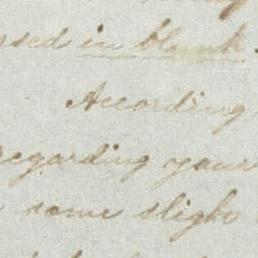 in blank.
According
regarding your
some sligh